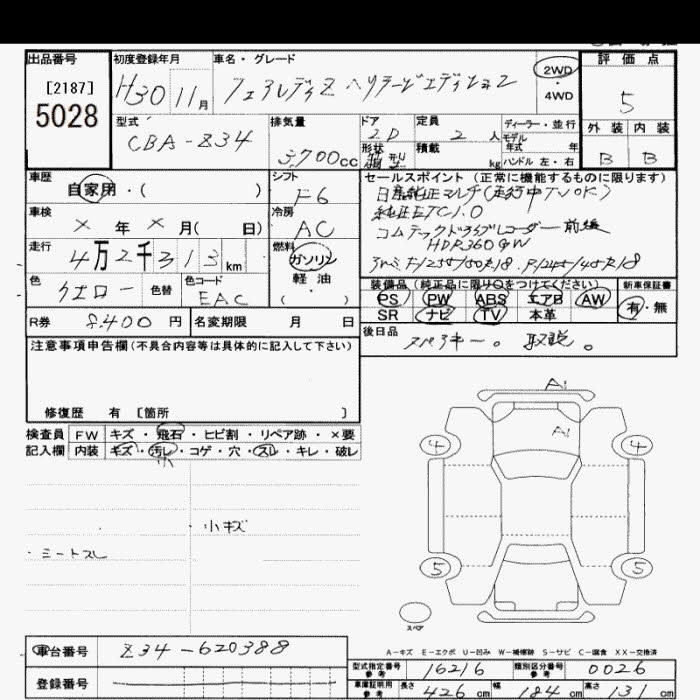 出品番号
[2187]
5028
初度登録年月
H30 11月
車名・グレード
フェアレディZ ヘリテージエディション
2WD
・
4WD
評価点
5
外装 内装
B B
型式
CBA-Z34
排気量
3,700cc
ドア
2D
形状
定員
2人
積載
kg
ディーラー・並行
モデル
年式 年
ハンドル 左・右
車歴
自家用・( )
車検
× 年 × 月( 日)
走行
4万2千313km
色
イエロー
色替
色コード
EAC
シフト
F6
冷房
AC
燃料
ガソリン
軽油
・
セールスポイント(正常に機能するものに限ります)
日産純正マルチ(走行中TVOK)
純正ETC1.0
コムテックドライブレコーダー前後
HDR360GW
タイヤ F/255/50R18. R/245/45R18
装備品(純正品に限り○をつけてください)
PS PW ABS エアB AW
SR ナビ TV 本革
新車保証書
有・無
R券 8,400円
名変期限 月 日
後日品
スペアキー。 取説。
注意事項申告欄(不具合内容等は具体的に記入して下さい)
修復歴 有 [箇所 ]
検査員
記入欄
FW キズ・飛石・ヒビ割・リペア跡・×要
内装 キズ・汚レ・コゲ・穴・スレ・キレ・破レ
小
・小キズ
・シートスレ
A1
A1
4 4
5 5
スペア
A-キズ E-エクボ U-凹み W-補修跡 S-サビ C-腐食 XX-交換済
車台番号 Z34-620388
登録番号
型式指定番号
参考
16216
類別区分番号
参考
0026
車庫証明用
参考
長さ 426cm 幅 184cm 高さ 131cm